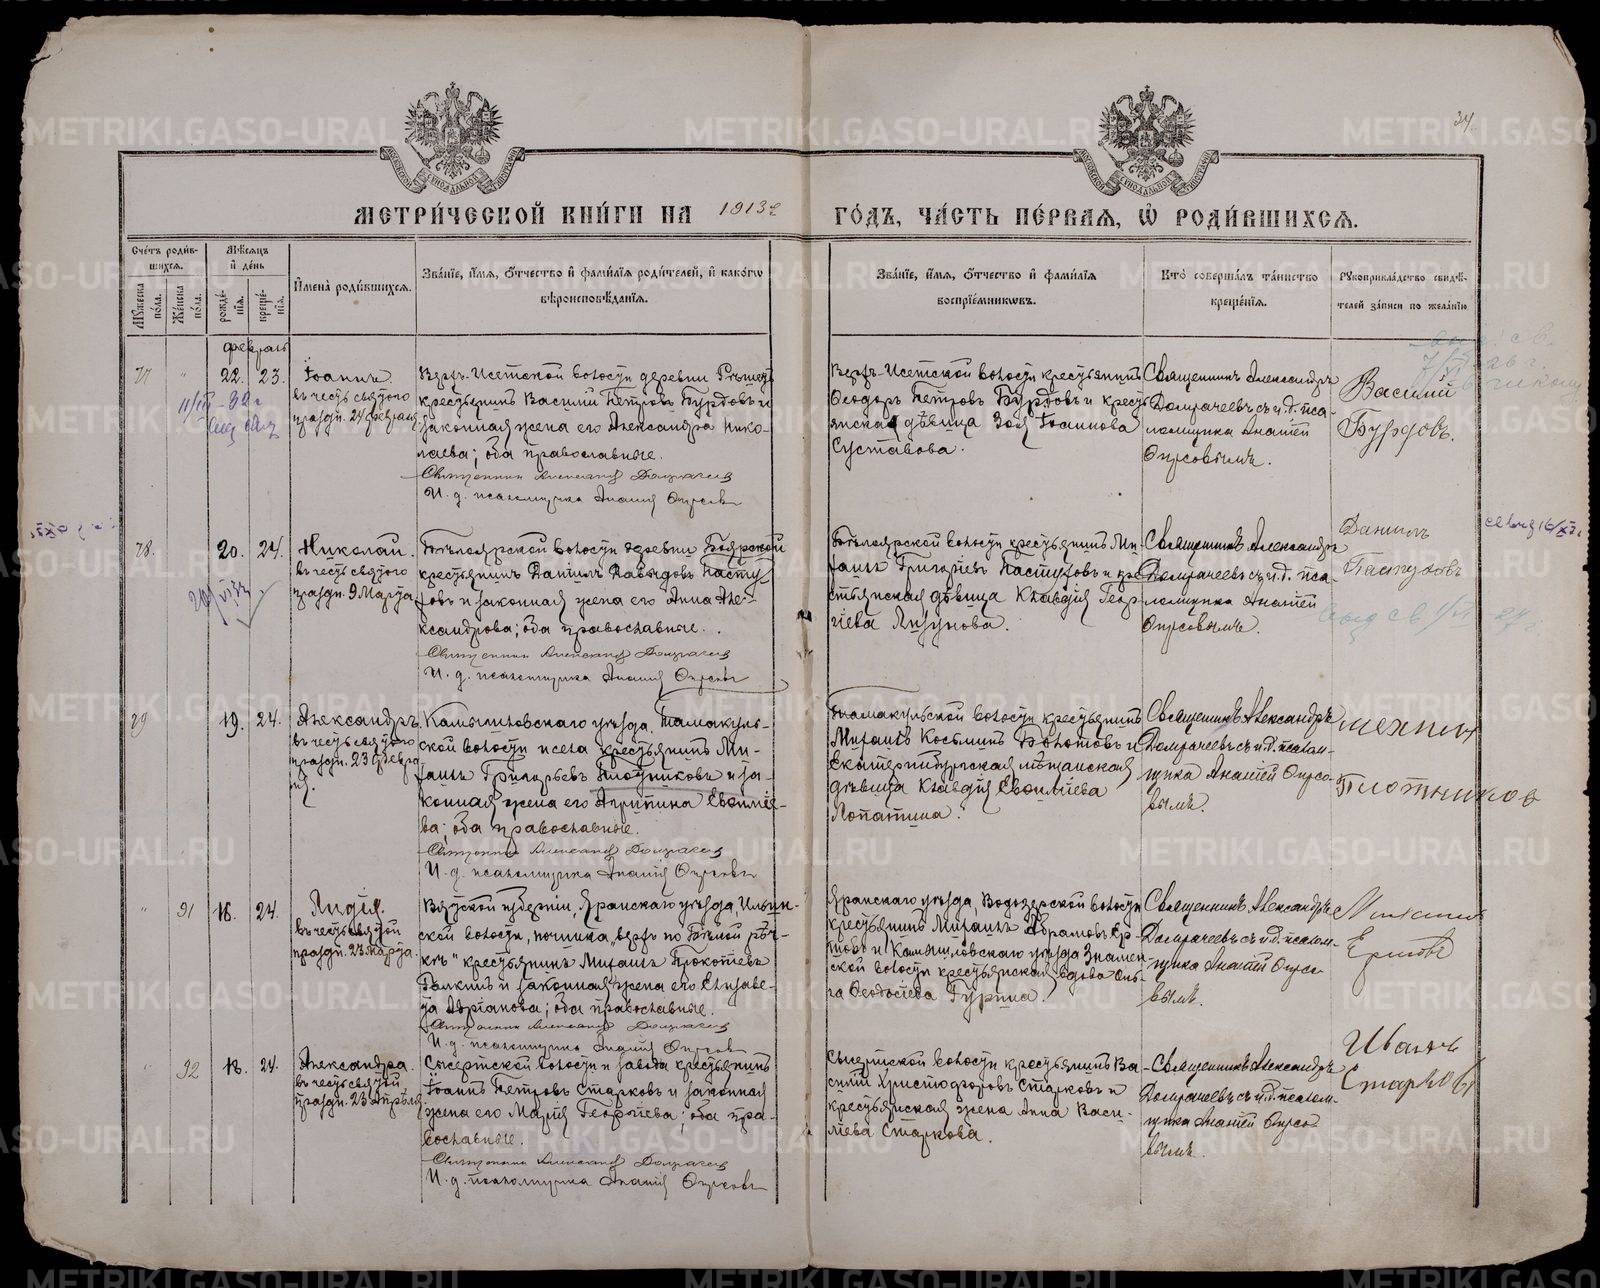 METRIKI.GASO-URAL.RU
34.
МЕТРИ́ЧЕСКОЙ КНИ́ГИ НА 1913 г. ГО́ДЪ, ЧА́СТЬ ПЕ́РВАЯ, Ѡ҆ РОДИ́ВШИХСЯ.
Сче́тъ роди́вшихся.
Му́жеска по́ла.
Же́нска по́ла.
Мѣ́сяцъ и҆ де́нь
рожде́нїя.
креще́нїя.
И҆мена̀ роди́вшихся.
Зва́нїе, и҆́мя, ѻ҆́тчество и҆ фами́лїя роди́телей, и҆ како́гѡ
вѣроисповѣ́данїя.
Зва́нїе, и҆́мя, ѻ҆́тчество и҆ фами́лїя
воспрїе́мникѡвъ.
Кто̀ соверша́лъ та́инство
креще́нїя.
Рꙋкоприкла́дство свидѣ́телей за́писи по жела́нїю
февраль
77
"
22.
23.
Іоаннъ.
въ честь святого
праздн. 24 февраля
Верх-Исетской волости деревни Решеты
крестьянинъ Василій Петровъ Бурдовъ и
законная жена его Александра Нико-
лаева; оба православные.
Священникъ Александръ Домрачевъ
И. д. псаломщика Ананій Опрсовъ
Верх-Исетской волости крестьянинъ
Ѳеодоръ Петровъ Бурдовъ и кресть
янская дѣвица Зоя Іоаннова
Суставова.
Священникъ Александръ
Домрачевъ съ и. д. пса-
ломщика Ананіей
Опрсовымъ.
Василий
Бурдовъ.
78.
20.
24.
Николай.
въ честь святого
праздн. 9 Марта
Бѣлоярской волости деревни Боярской
крестьянинъ Даніилъ Давидовъ Пасту
ховъ и законная жена его Анна Але-
ксандрова; оба православные.
Священникъ Александръ Домрачевъ
И. д. псаломщика Ананій Опрсовъ
Бѣлоярской волости крестьянинъ Ми-
хаилъ Григоріевъ Пастуховъ и кре
стьянская дѣвица Клавдія Геор-
гіева Лизунова.
Священникъ Александръ
Домрачевъ съ и. д. пса-
ломщика Ананіей
Опрсовымъ.
Данилъ
Пастуховъ
79
19.
24.
Александръ
въ честь святого
праздн. 23 Февра
ля.
Камышловскаго уѣзда, Тамакуль-
ской волости и села крестьянинъ Ми-
хаилъ Григорьевъ Плотниковъ и за-
конная жена его Агрипина Евѳиміе-
ва; оба православные.
Священникъ Александръ Домрачевъ
И. д. псаломщика Ананій Опрсовъ
Тамакульской волости крестьянинъ
Михаилъ Косьминъ Болотовъ и
Екатеринбургская мѣщанская
дѣвица Клавдія Евѳиміева
Лопатина.
Священникъ Александръ
Домрачевъ съ и. д. псалом-
щика Ананіей Опрсо
вымъ.
Плотников
"
91
18.
24.
Лидія.
въ честь святой
праздн. 23 Марта.
Вятской губерніи, Яранскаго уѣзда, Ильин-
ской волости, починка "верхъ по Бѣлой рѣч-
кѣ" крестьянинъ Михаилъ Прокопіевъ
Галкинъ и законная жена его Елизаве-
та Адріанова; оба православные.
Священникъ Александръ Домрачевъ
И. д. псаломщика Ананій Опрсовъ
Яранскаго уѣзда, Водозерской волости
крестьянинъ Михаилъ Абрамовъ Ер-
шовъ и Камышловскаго уѣзда Знамен-
ской волости крестьянская вдова Оль-
га Ѳеодосіева Гурина.
Священникъ Александръ
Домрачевъ съ и. д. псалом-
щика Ананіей Опрсо
вымъ.
Михаилъ
Ершовъ
"
92
18.
24.
Александра.
въ честь святой
праздн. 23 Апрѣля
Сысертской волости и завода крестьянинъ
Іоаннъ Петровъ Старковъ и законная
жена его Марія Георгіева; оба пра-
вославные.
Священникъ Александръ Домрачевъ
И. д. псаломщика Ананій Опрсовъ
Сысертской волости крестьянинъ Ва
силій Христофоровъ Старковъ и
крестьянская жена Анна Васи-
ліева Старкова.
Священникъ Александръ
Домрачевъ съ и. д. псалом-
щика Ананіей Опрсо
вымъ.
Иванъ
Старковъ